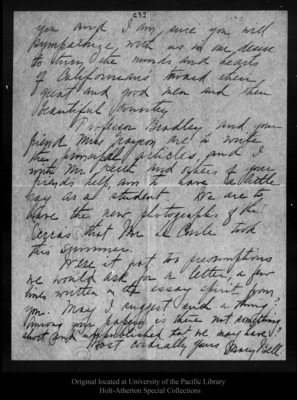 you and I am sure you will
sympathize with us in our desire
to turn the minds and hearts
of Californians toward their
great and good men and their
beautiful country.
Professor Bradley and your
friend Miss are to write
the principal articles, and I
with Mr. Keith and others of your
friends help am to have a little
say as a student. We are to
have the new photographs of the
Sierras that Mr. Le Conte took
this summer.
Were it not too presumptious
we would ask for a letter, a few
lines written in the essay spirit from
you. May I suggest such a thing?
Among your papers is there not something
short and unpublished that we may have?
Most cordially yours, Bell
Original located at University of the Pacific Library
Holt-Atherton Special Collections